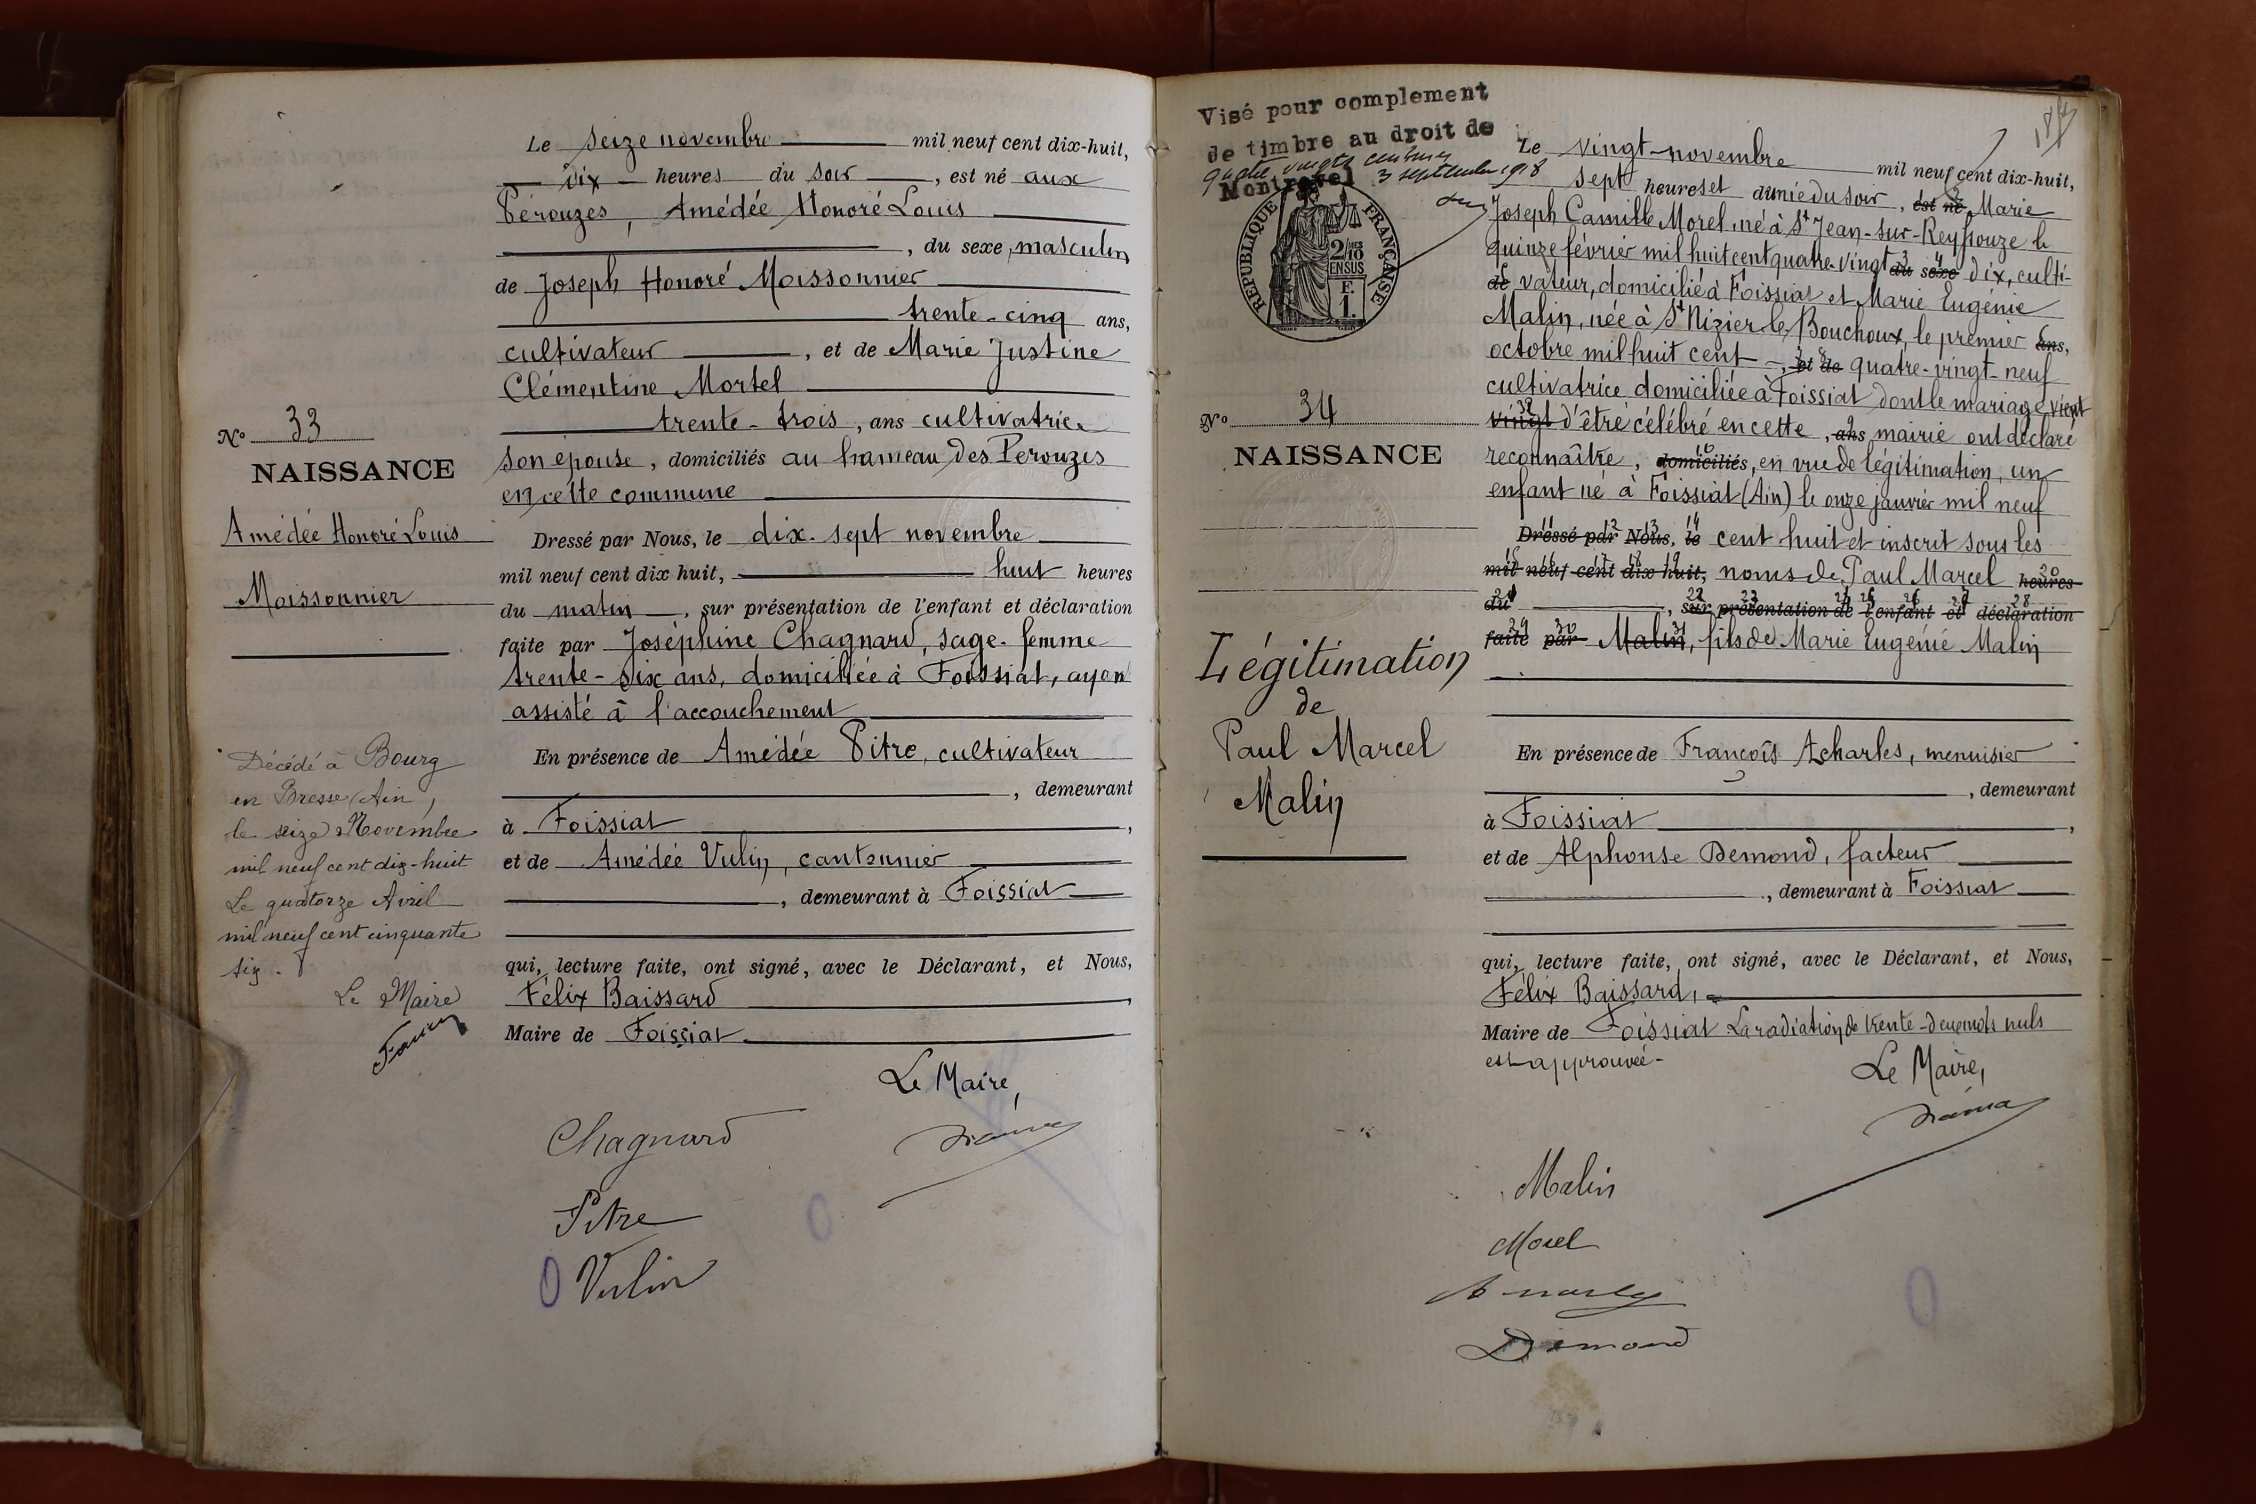 Le seize novembre mil neuf cent dix-huit,
dix heures du soir, est né aux
Pérouzes, Amédée Honoré Louis
, du sexe masculin
de Joseph Honoré Moissonnier
trente-cinq ans,
cultivateur, et de Marie Justine
Clémentine Mortel
trente-trois, ans cultivatrice
son épouse, domiciliés au hameau des Perouzes
en cette commune
Dressé par Nous, le dix-sept novembre
mil neuf cent dix huit, huit heures
du matin, sur présentation de l'enfant et déclaration
faite par Joséphine Chagnard, sage-femme
trente-six ans, domiciliée à Foissiat, ayant
assisté à l'accouchement
En présence de Amédée Pitre, cultivateur
, demeurant
à Foissiat,
et de Amédée Vulin, cantonnier
, demeurant à Foissiat
qui, lecture faite, ont signé, avec le Déclarant, et Nous,
Félix Baissard,
Maire de Foissiat
Le Maire,
Chagnard
Pitre
Vulin
N° 33
NAISSANCE
Amédée Honoré Louis
Moissonnier
Décédé à Bourg
en Bresse (Ain),
le seize Novembre
mil neuf cent dix-huit
Le quatorze Avril
mil neuf cent cinquante
six.
Le Maire
Visé pour complement
de timbre au droit de
quatre vingts centimes
Montrevel 3 septembre 1918
RÉPUBLIQUE FRANÇAISE
2/10 EN SUS
F.
1.
N° 34
NAISSANCE
Légitimation
de
Paul Marcel
Malin
Le vingt-novembre mil neuf cent dix-huit,
sept heures et demie du soir, est né Marie
Joseph Camille Morel, né à St Jean-sur-Reyssouze le
quinze février mil huit cent quatre-vingt du sexe dix, culti-
de vateur, domicilié à Foissiat et Marie Eugénie
Malin, née à St Nizier-le-Bouchoux, le premier ans,
octobre mil huit cent, et de quatre-vingt-neuf
cultivatrice domiciliée à Foissiat dont le mariage vient
vingt d'être célébré en cette, ans mairie ont déclaré
reconnaître, domiciliés, en vue de légitimation, un
enfant né à Foissiat (Ain) le onze janvier mil neuf
Dressé par Nous, le cent huit et inscrit sous les
mil neuf cent dix huit, noms de Paul Marcel heures
du, sur présentation de l'enfant et déclaration
faite par Malin, fils de Marie Eugénie Malin
En présence de François Acharles, menuisier
, demeurant
à Foissiat,
et de Alphonse Demond, facteur
, demeurant à Foissiat
qui, lecture faite, ont signé, avec le Déclarant, et Nous,
Félix Baissard,
Maire de Foissiat La radiation de trente-deux mots nuls
est approuvée-
Le Maire,
Malin
Morel
Demond